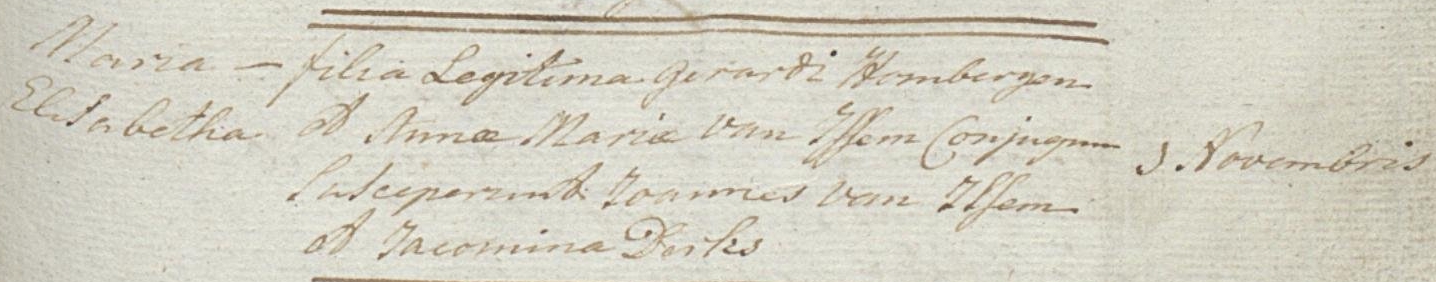 Maria – filia Legitima Gerardi Hombergen
Elisabetha et Annæ Mariæ van Issem Conjugum 3 Novembris
Susceperunt Joannes van Issem
et Jacomina Derks